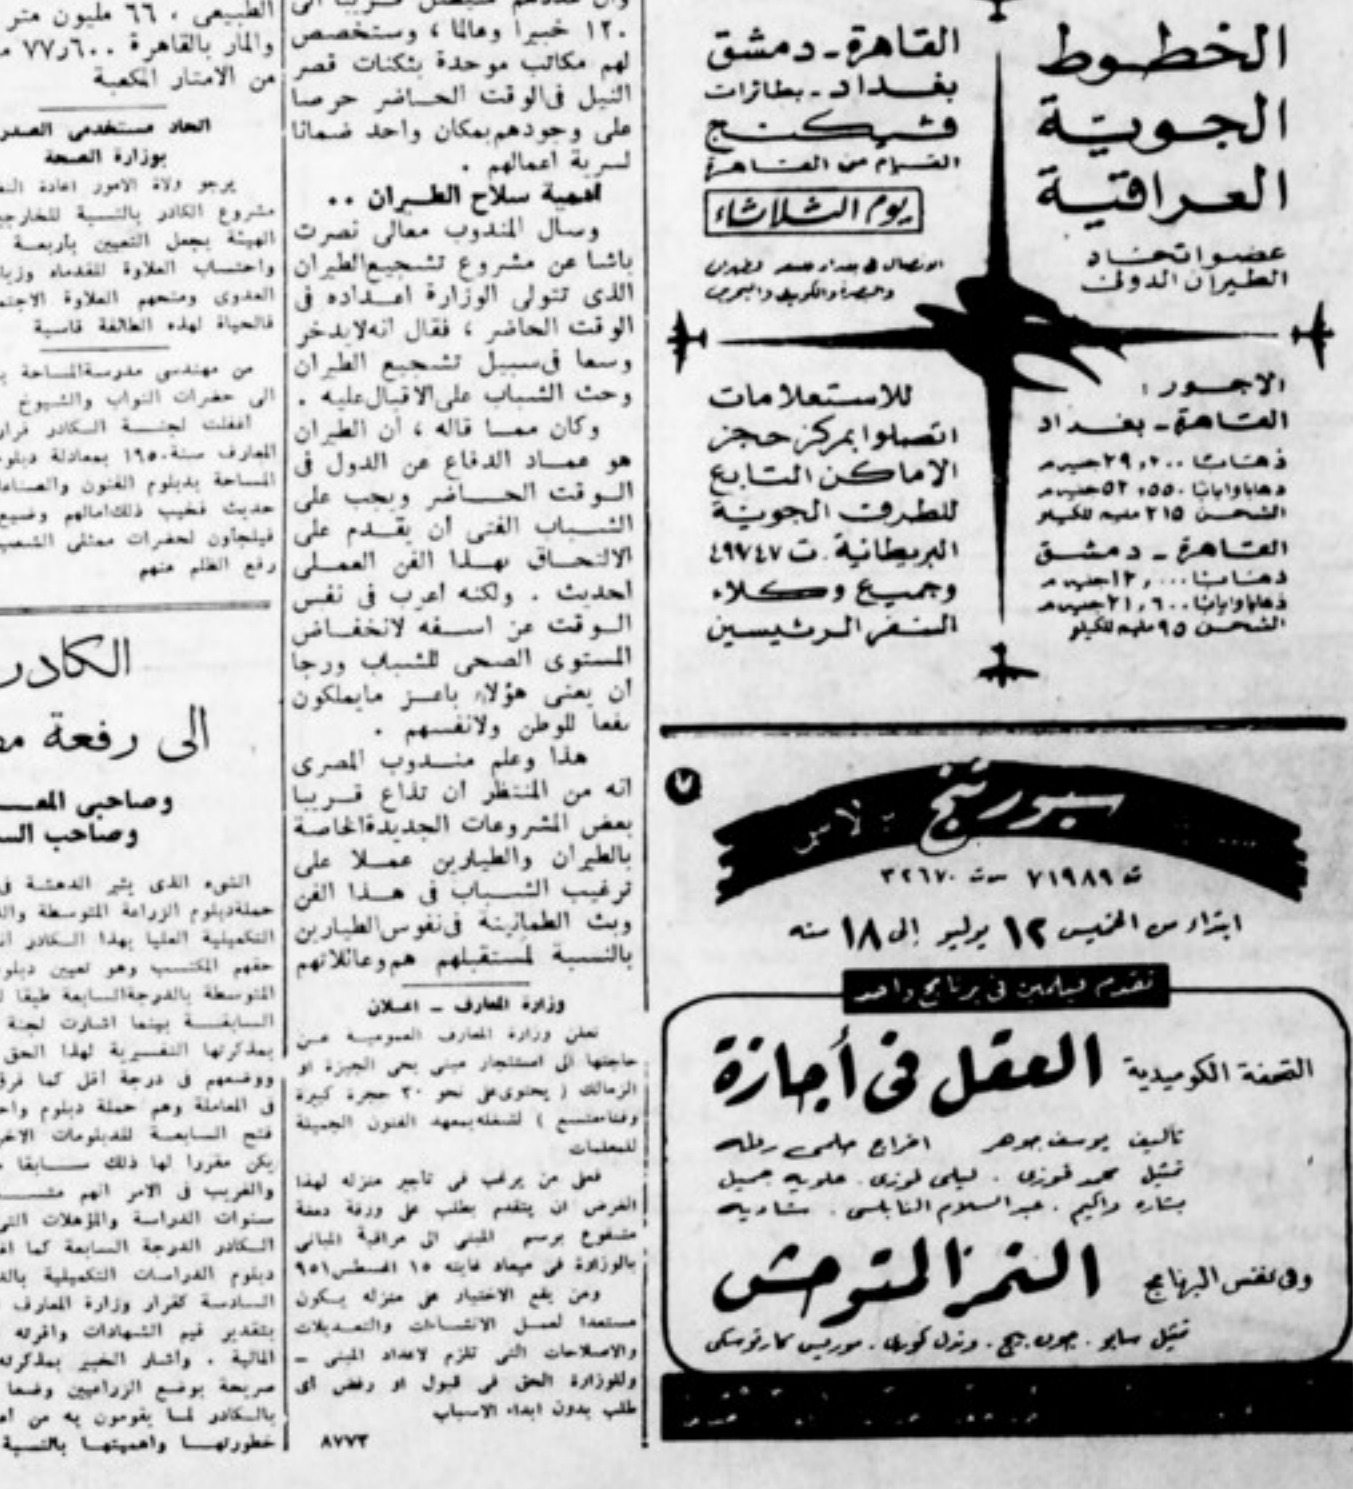 الخطوط
الجوية
العراقية
عضو اتحاد
الطيران الدولى
القاهرة - دمشق
بغداد - بطائرات
فيكنج
القيام من القاهرة
يوم الثلاثاء
الاجور :
القاهرة - بغداد
ذهابا ٢٩,٢٠٠ جنيه
ذهابا وايابا ٥٢,٥٥٠ جنيه
الشحن ٢١٥ مليم للكيلو
القاهرة - دمشق
ذهابا ١٢,٠٠٠ جنيه
ذهابا وايابا ٢١,٦٠٠ جنيه
الشحن ٩٥ مليم للكيلو
للاستعلامات
اتصلوا بمركز حجز
الاماكن التابع
للطرق الجوية
البريطانية . ت ٤٩٧٤٧
وجميع وكلاء
السفر الرئيسين
٧
سبورتنج
ت ٧١٩٨٩ س ت ٣٢٦٧٠
ابتداء من الخميس ١٢ يوليو إلى ١٨ منه
تقدم فيلمين فى برنامج واحد
التحفة الكوميدية العقل فى أجازة
تأليف يوسف جوهر اخراج حلمى رفله
تمثيل محمد فوزى . ليلى فوزى . علويه جميل
بشاره واكيم . عبد السلام النابلسى . شاديه
وفى نفس البرنامج النمر المتوحش
تمثيل سابو . جون . وندل كورى . موريس
١٢٠ خبيرا وعالما ، وستخصص
لهم مكاتب موحدة بثكنات قصر
النيل فى الوقت الحاضر حرصا
على وجودهم بمكان واحد ضمانا
لسرية اعمالهم .
أهمية سلاح الطيران ..
وسال المندوب معالى نصرت
باشا عن مشروع تشجيع الطيران
الذى تتولى الوزارة اعداده فى
الوقت الحاضر ، فقال انه لا يدخر
وسعا فى سبيل تشجيع الطيران
وحث الشباب على الاقبال عليه .
وكان مما قاله ، أن الطيران
هو عماد الدفاع عن الدول فى
الوقت الحاضر ويجب على
الشباب الفنى أن يقدم على
الالتحاق بهذا الفن العملى
الحديث . ولكنه اعرب فى نفس
الوقت عن اسفه لانخفاض
المستوى الصحى للشباب ورجا
أن يعنى هؤلاء باعز ما يملكون
نفعا للوطن ولانفسهم .
هذا وعلم مندوب المصرى
انه من المنتظر أن تذاع قريبا
بعض المشروعات الجديدة الخاصة
بالطيران والطيارين عملا على
ترغيب الشباب فى هذا الفن
وبث الطمأنينة فى نفوس الطيارين
بالنسبة لمستقبلهم هم وعائلاتهم
وزارة المعارف - اعلان
تعلن وزارة المعارف العمومية عن
حاجتها الى استئجار مبنى بحى الجيزة او
الزمالك ( يحتوى على نحو ٣٠ حجرة كبيرة
وفناء متسع ) لشغله بمعهد الفنون الجميلة
للمعلمات
فعلى من يرغب فى تأجير منزله لهذا
الغرض ان يتقدم بطلب على ورقة دمغة
مشفوع برسم المبنى الى مراقبة المبانى
بالوزارة فى ميعاد غايته ١٥ اغسطس ٩٥١
ومن يقع الاختيار على منزله يكون
مستعدا لعمل الانشاءات والتعديلات
والاصلاحات التى تلزم لاعداد المبنى -
وللوزارة الحق فى قبول او رفض أى
طلب بدون ابداء الاسباب
٨٧٧٣
الطبيعى ، ٦٦ مليون متر
والمار بالقاهرة ٧٧,٦٠٠
من الامتار المكعبة
اتحاد مستخدمى
بوزارة الصحة
يرجو ولاة الامور اعادة
مشروع الكادر بالنسبة
الهيئة بجعل التعيين بأربعة
واحتساب العلاوة للقدماء
العدوى ومنحهم العلاوة
فالحياة لهذه الطائفة قاسية
من مهندسى مدرسة المساحة
الى حضرات النواب والشيوخ
اغفلت لجنة الكادر قرار
المعارف سنة ١٩٥٠ بمعادلة
المساحة بدبلوم الفنون
حديث فخيب ذلك امالهم
فيلجأون لحضرات ممثلى
رفع الظلم عنهم
الكادر
الى رفعة
وصاحبى
وصاحب
الشىء الذى يثير الدهشة
حملة دبلوم الزراعة المتوسطة
التكميلية العليا بهذا الكادر
حقهم المكتسب وهو تعيين
المتوسطة بالدرجة السابعة طبقا
السابقة بينما اشارت لجنة
بمذكرتها التفسيرية لهذا الحق
ووضعهم فى درجة أقل كما
فى المعاملة وهم حملة دبلوم
فتح السابعة للدبلومات
يكن مقررا لها ذلك سابقا
والغريب فى الامر انهم
سنوات الدراسة والمؤهلات
الكادر الدرجة السابعة كما
دبلوم الدراسات التكميلية
السادسة كقرار وزارة المعارف
بتقدير قيم الشهادات واقرته
المالية . واشار الخبير بمذكرته
صريحة بوضع الزراعيين وضعا
بالكادر لما يقومون به من
خطورتها واهميتها بالنسبة